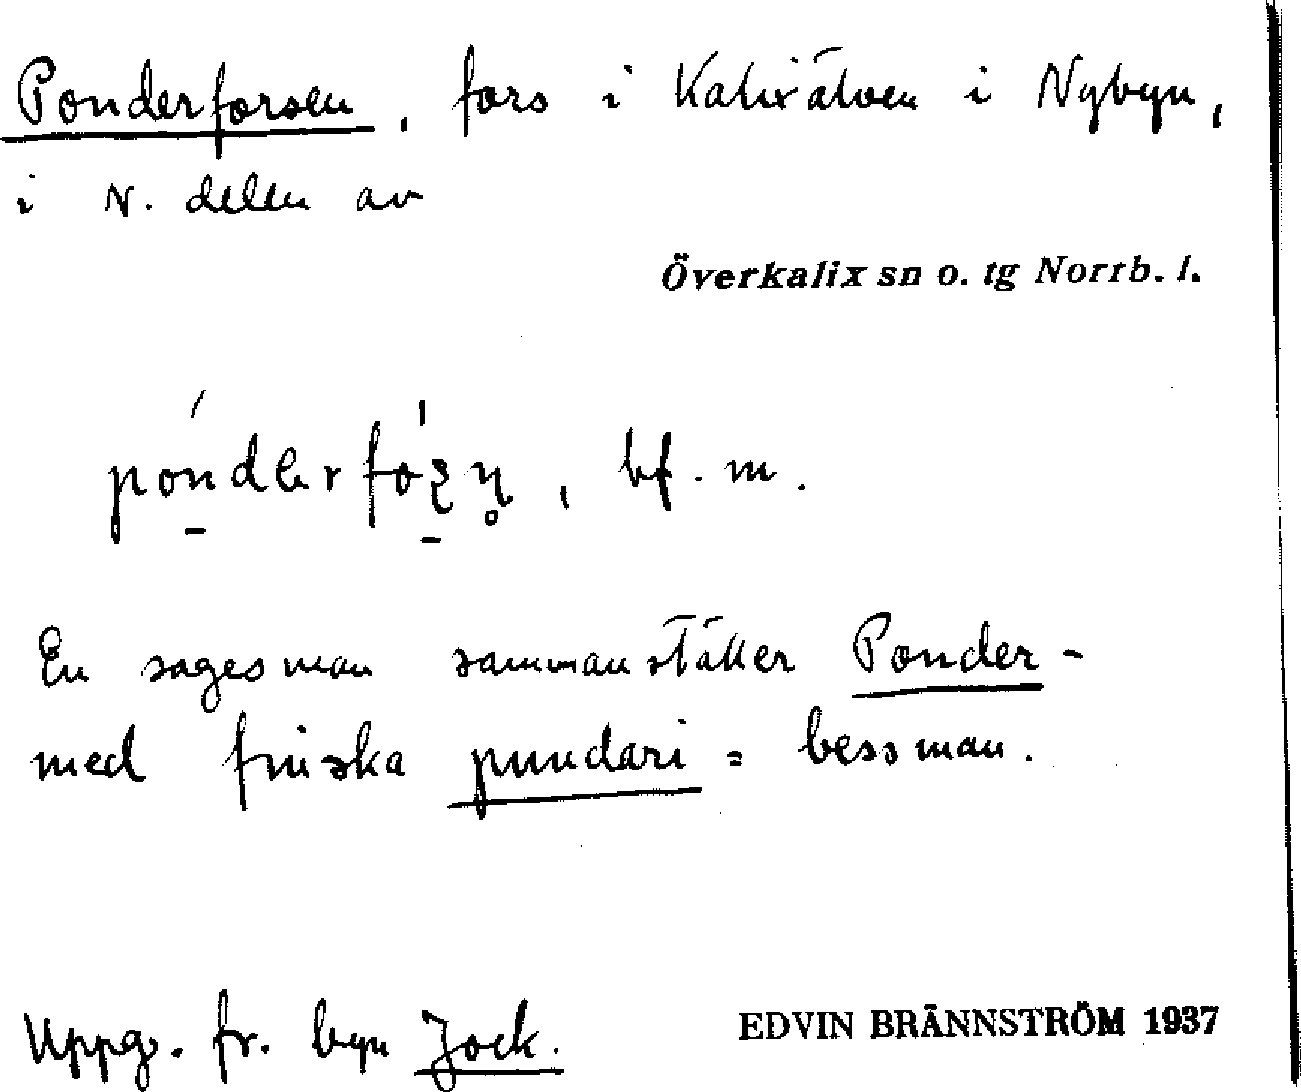 Ponderforsen, fors i Kalixälven i Nybyn,
i N. delen av
Överkalix sn o. tg Norrb. l.
bf. m.
En sagesman sammanställer Ponder-
med finska pundari = bessman.
Uppg. fr. byn Jock.
EDVIN BRÄNNSTRÖM 1937